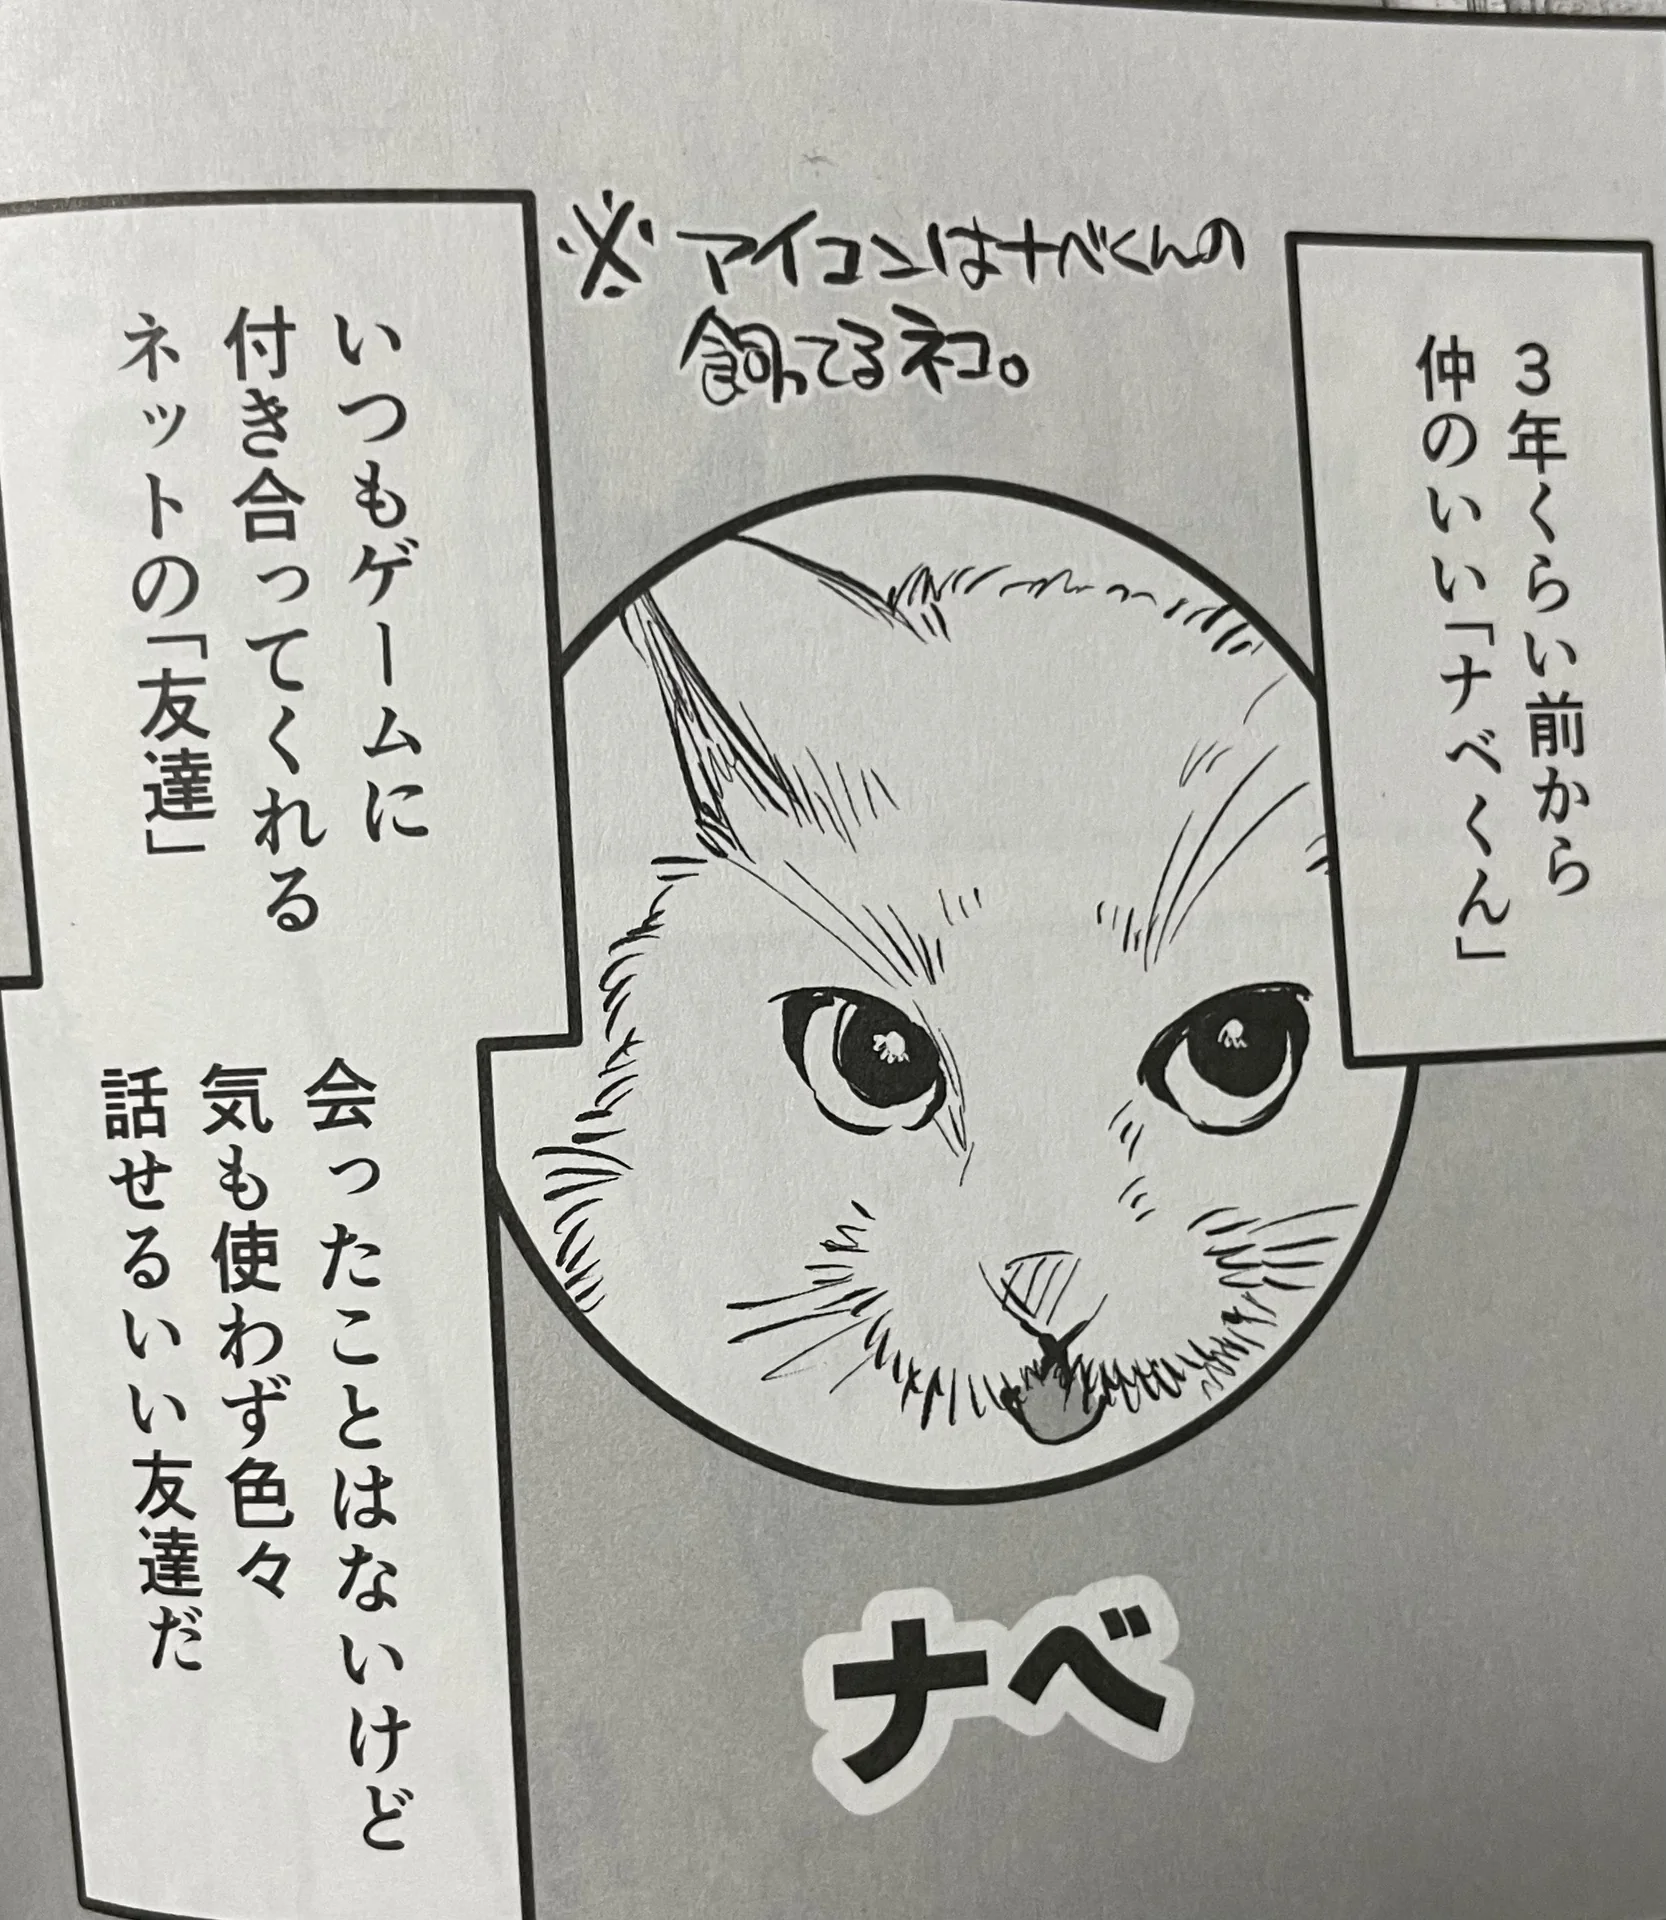 3年くらい前から
仲のいい「ナベくん」
※アイコンはナベくんの
飼ってるネコ。
ナベ
いつもゲームに
付き合ってくれる
ネットの「友達」
会ったことはないけど
気も使わず色々
話せるいい友達だ